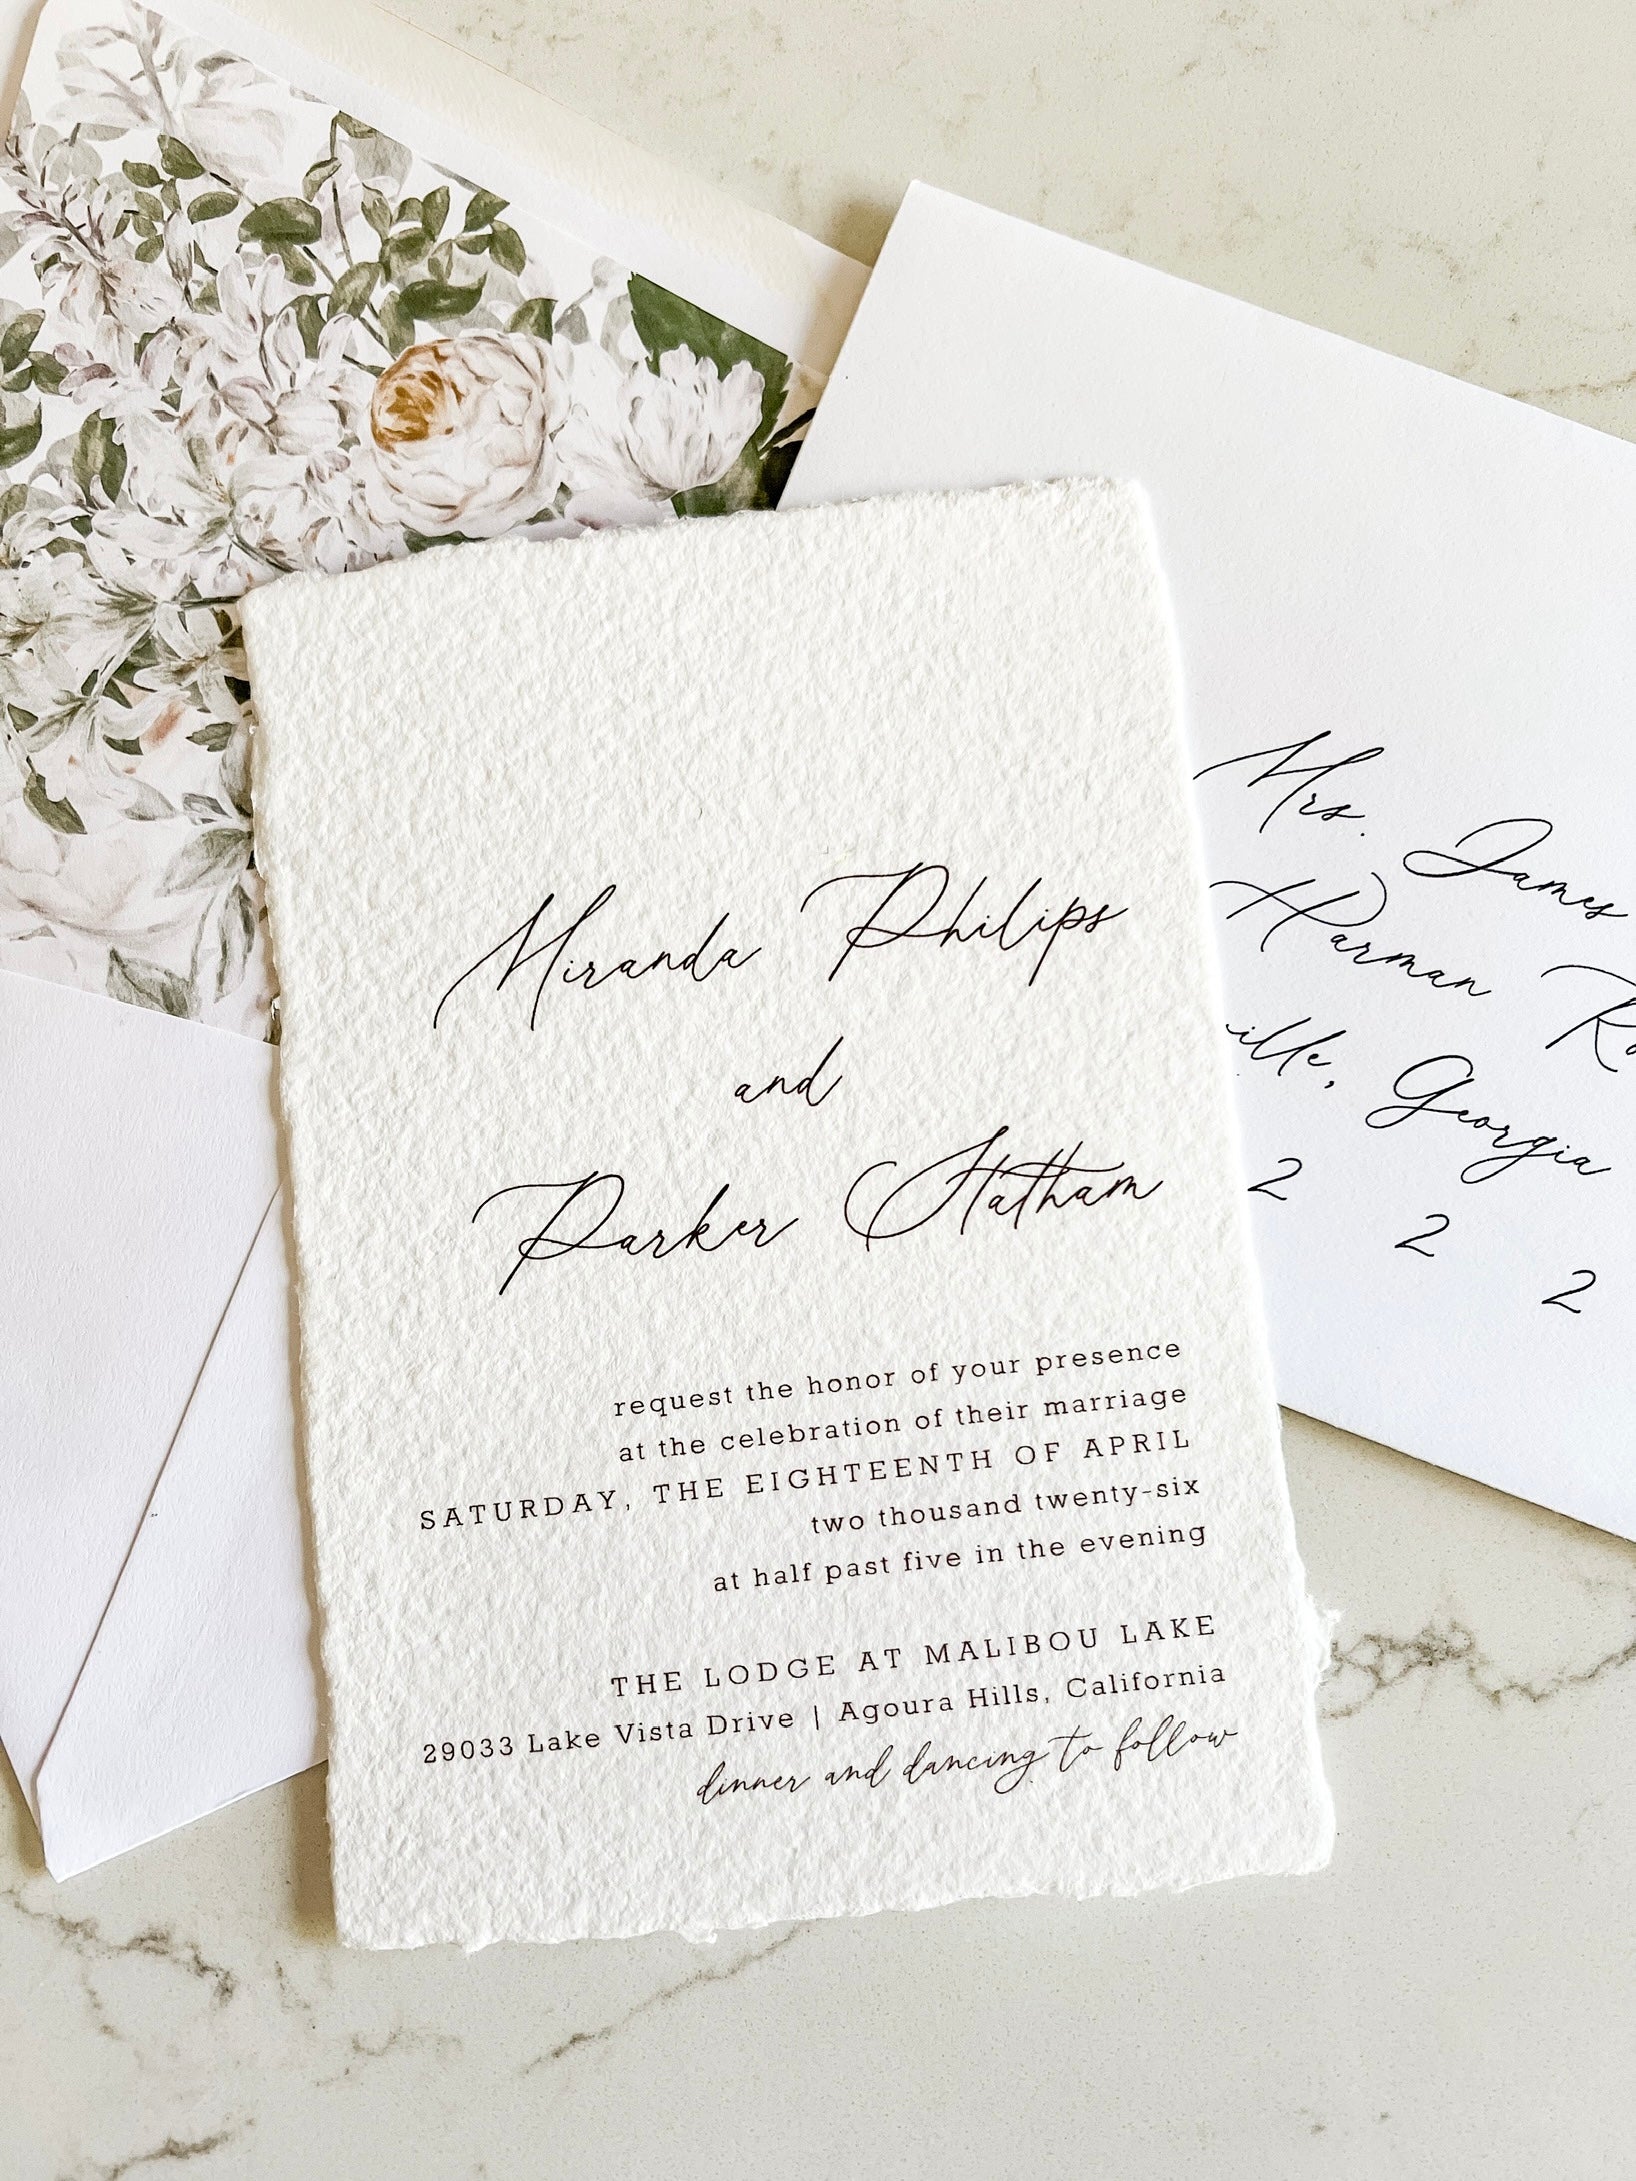 Miranda Philips
and
Parker Statham
request the honor of your presence
at the celebration of their marriage
SATURDAY, THE EIGHTEENTH OF APRIL
two thousand twenty-six
at half past five in the evening
THE LODGE AT MALIBOU LAKE
29033 Lake Vista Drive | Agoura Hills, California
dinner and dancing to follow
Mrs. James
Harman
ville, Georgia
2 2 2